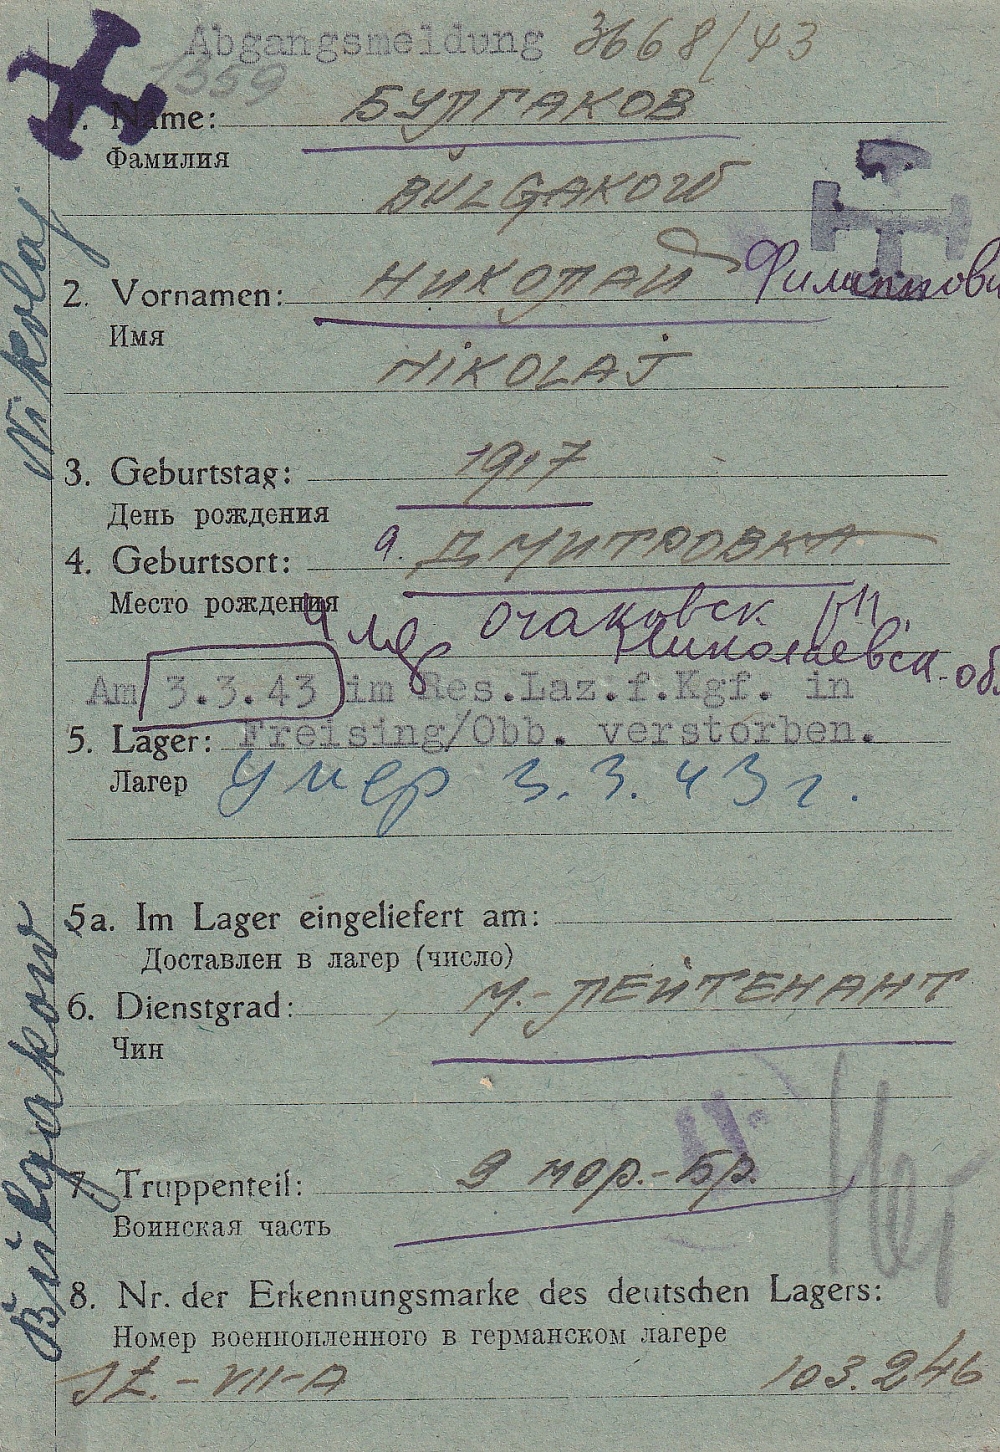 Abgangsmeldung 3668/43
1359
1. Name: БУЛГАКОВ
Фамилия
BULGAKOW
2. Vornamen: НИКОЛАЙ Филиппови
Имя
NIKOLAJ
3. Geburtstag: 1917
День рождения
4. Geburtsort: ДМИТРОВКА
Место рождения
Очаковск
Николаевск. обл
Am 3.3.43 im Res.Laz.f.Kgf. in
Freising/Obb. verstorben.
5. Lager:
Лагер умер 3.3.43 г.
5a. Im Lager eingeliefert am:
Доставлен в лагер (число)
6. Dienstgrad: М.-ЛЕЙТЕНАНТ
Чин
7. Truppenteil: 9 мор.-бр.
Воинская часть
8. Nr. der Erkennungsmarke des deutschen Lagers:
Номер военнопленного в германском лагере
St.-VII-A 103.246
Bŭlgakow Nikolaj